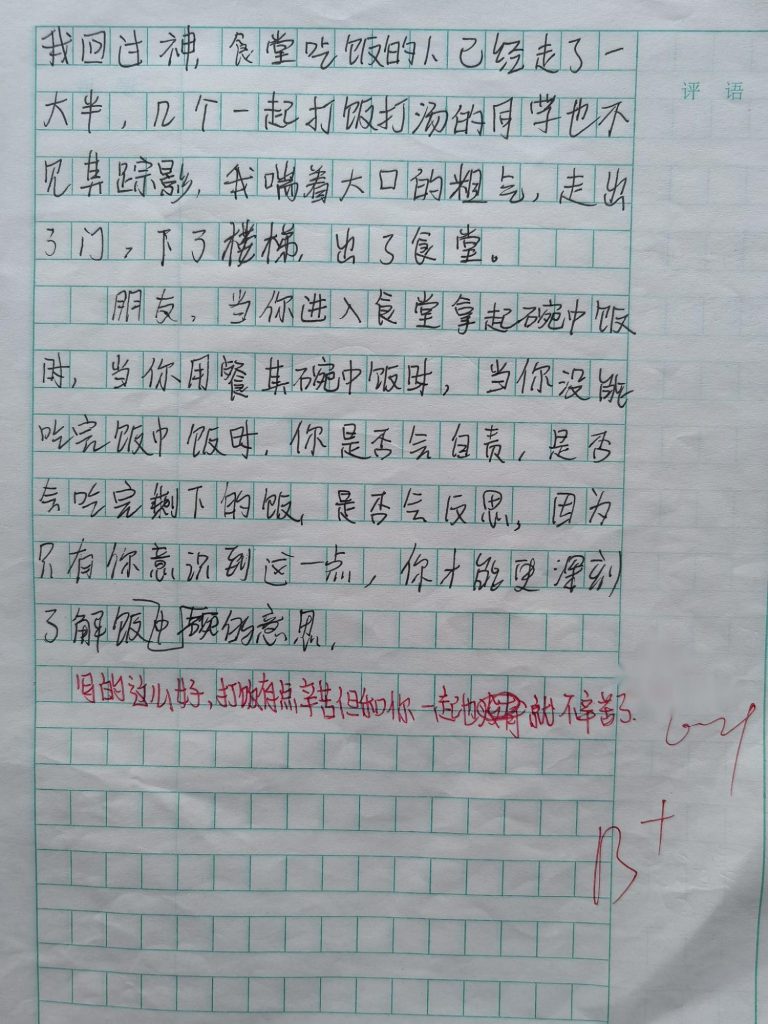 我回过神,食堂吃饭的人已经走了一
评语
大半,几个一起打饭打汤的同学也不
见其踪影,我喘着大口的粗气,走出
了门,下了楼梯,出了食堂。
朋友,当你进入食堂拿起碗中饭
时,当你用餐其碗中饭时,当你没能
吃完饭中饭时,你是否会自责,是否
会吃完剩下的饭,是否会反思,因为
只有你意识到这一点,你才能更深刻
了解饭中碗的意思,
写的这么好,打饭有点辛苦但和你一起也就不辛苦了.
B+